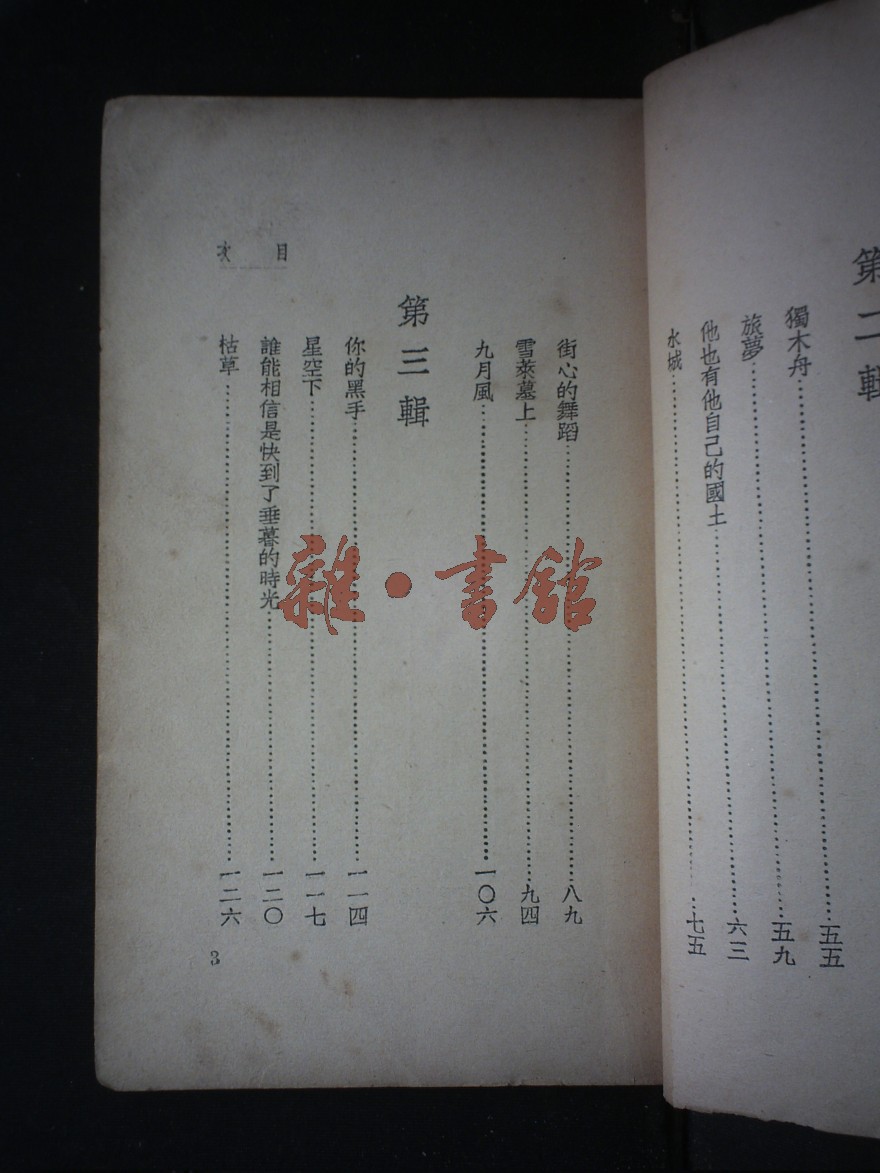 第二輯
獨木舟……五五
旅夢……五九
他也有他自己的國土……六三
水城……七五
街心的舞蹈……八九
雪萊墓上……九四
九月風……一〇六
第三輯
你的黑手……一一四
星空下……一一七
誰能相信是快到了垂暮的時光……一二〇
枯草……一二六
目次
3
雜·書館